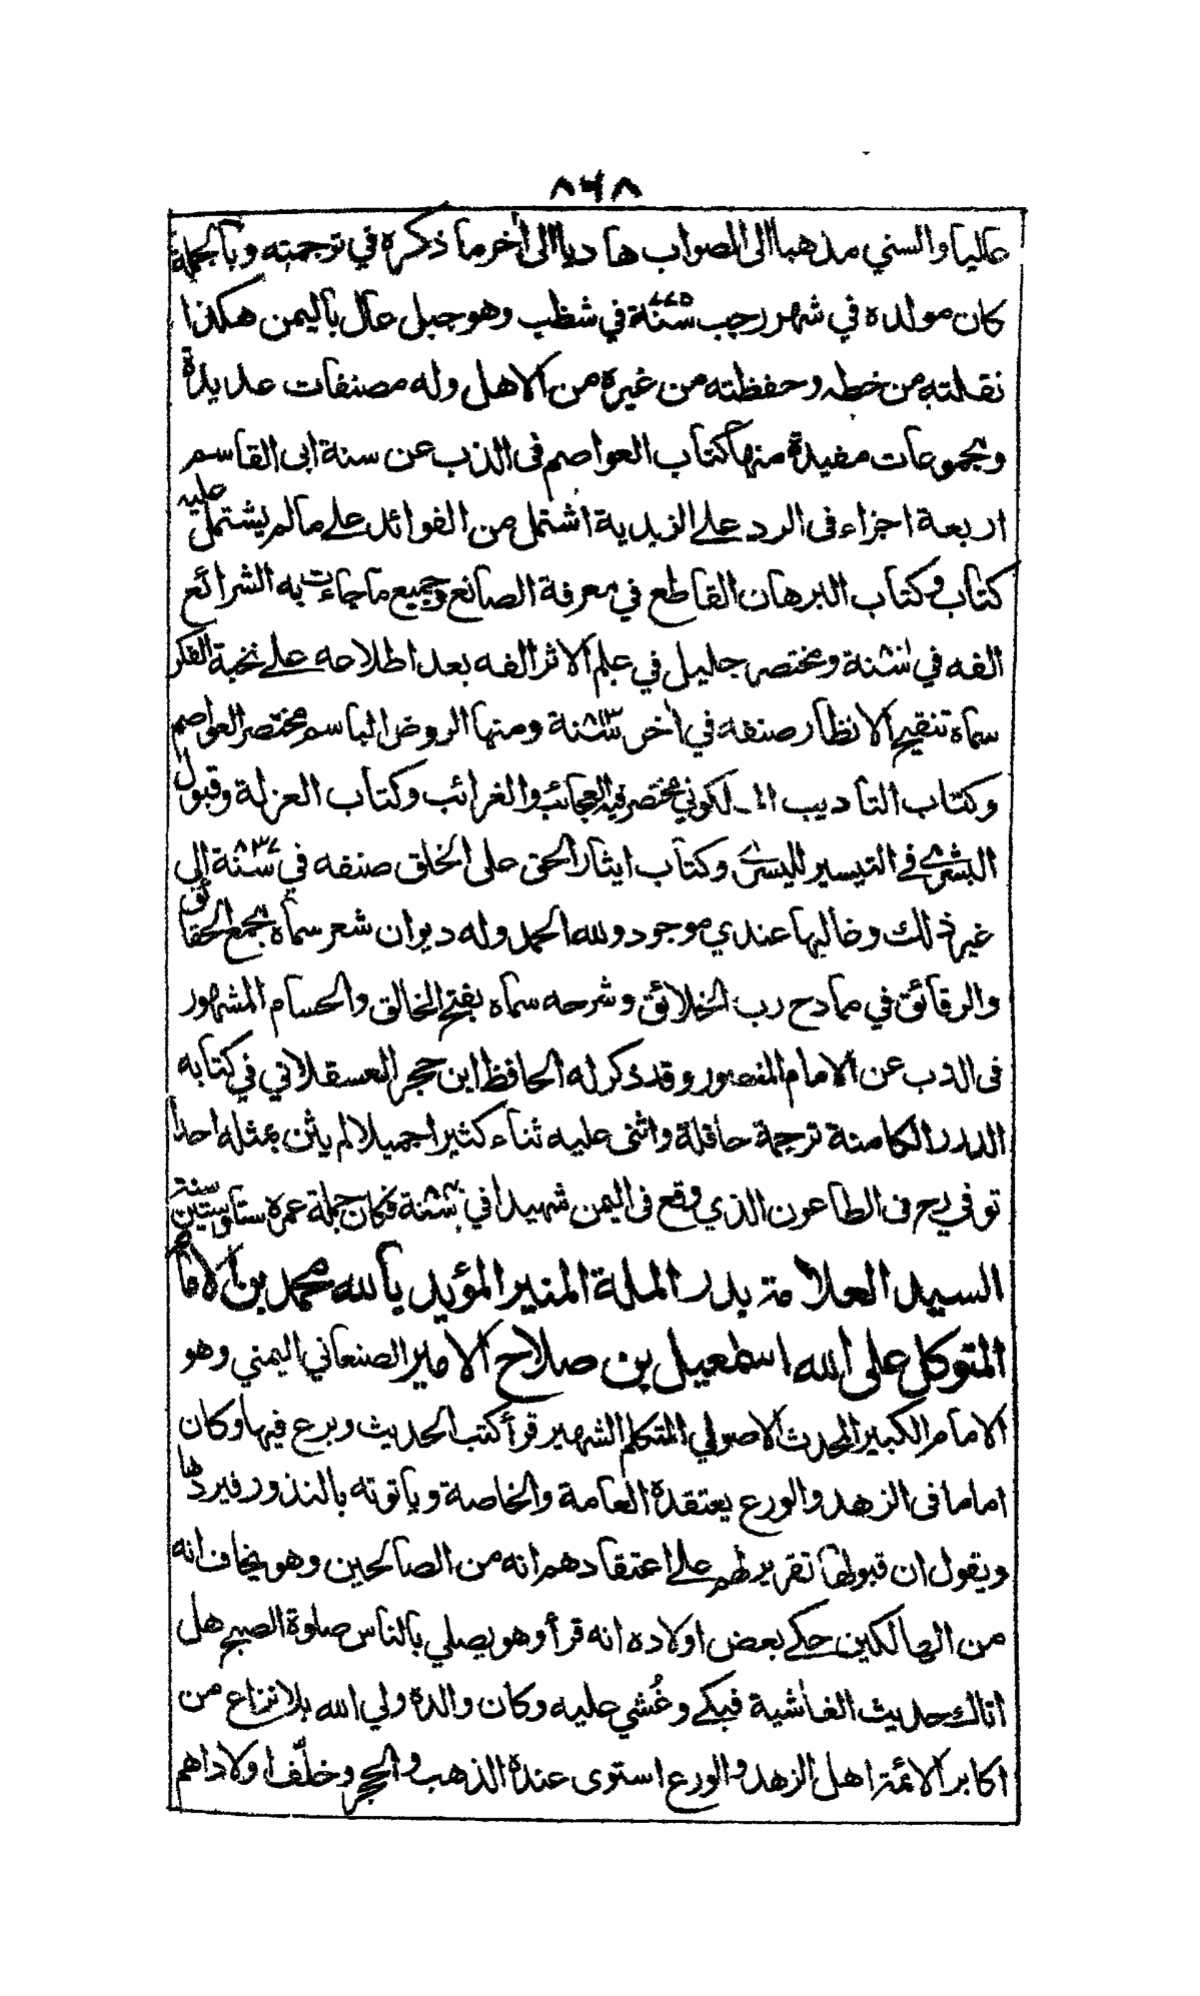 ٨٦٨
عاليا والسني مذهبا الى الصواب هاديا الى أخر ما ذكره في ترجمته وبالجملة
كان مولده في شهر رجب سنة ٧٧٥ في شظب وهو جبل عال باليمن هكذا
نقلته من خطه وحفظته من غيره من الاهل وله مصنفات عديدة
ومجموعات مفيدة منها كتاب العواصم فى الذب عن سنة ابى القاسم
اربعة اجزاء فى الرد على الزيدية اشتمل من الفوائد على ما لم يشتمل عليه
كتاب وكتاب البرهان القاطع في معرفة الصانع وجميع ما جاءت به الشرائع
الفه في سنة ومختصر جليل في علم الاثر الفه بعد اطلاعه على نخبة الفكر
سماه تنقيح الانظار صنفه في أخر سنة ٨١٣ ومنها الروض الباسم مختصر العواصم
وكتاب التأديب الملكوتي مختصر فيه العجائب والغرائب وكتاب العزلة وقبول
البشرى في التيسير لليسرى وكتاب ايثار الحق على الخلق صنفه في سنة ٨٣٧ إلى
غير ذلك وغالبها عندي موجود ولله الحمد وله ديوان شعر سماه مجمع الحقائق
والرقائق في ممادح رب الخلائق وشرحه سماه بفتح الخالق والحسام المشهور
فى الذب عن الامام المنصور وقد ذكر له الحافظ ابن حجر العسقلاني في كتابه
الدرر الكامنة ترجمة حافلة واثنى عليه ثناء كثيرا جميلا لم يثن بمثله احدا
توفي رح فى الطاعون الذي وقع فى اليمن شهيدا في سنة فكان جملة عمره ستا وستين سنة
السيد العلامة بدر الملة المنير المؤيد بالله محمد بن الامام
المتوكل على الله اسمعيل بن صلاح الامير الصنعاني اليمني وهو
الامام الكبير المحدث الاصولي المتكلم الشهير قرأ كتب الحديث وبرع فيها وكان
اماما فى الزهد والورع يعتقده العامة والخاصة وياتوته بالنذور فيردها
ويقول ان قبولها تقرير لهم على اعتقادهم انه من الصالحين وهو يخاف انه
من الهالكين حكى بعض اولاده انه قرأ وهو يصلي بالناس صلوة الصبح هل
اتاك حديث الغاشية فبكى وغُشي عليه وكان والده ولي الله بلا نزاع من
اكابر الائمة اهل الزهد والورع استوى عنده الذهب والحجر وخلّف اولادا هم